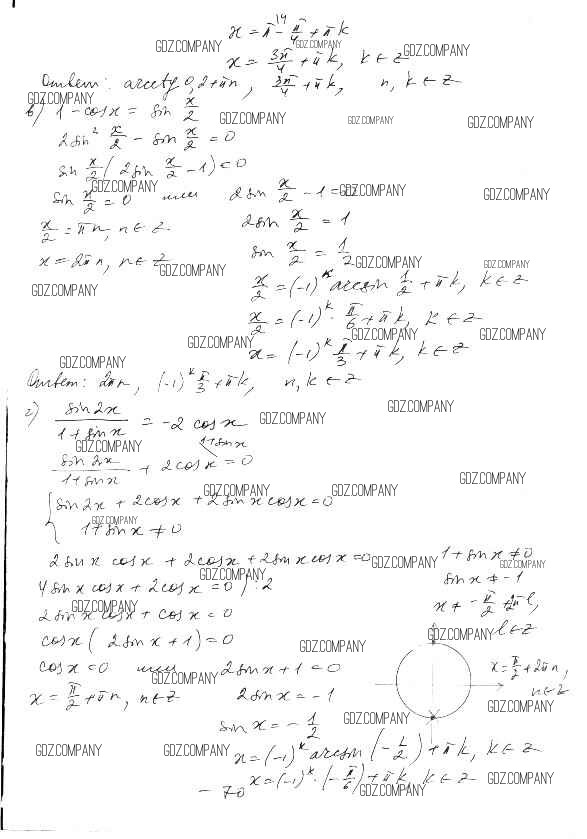 x = π - π/4 + πk
x = 3π/4 + πk, k ∈ Z
Ответ: arcctg 0,2 + πn, 3π/4 + πk, n, k ∈ Z
в) 1 - cos x = sin x/2
2 sin² x/2 - sin x/2 = 0
sin x/2 (2 sin x/2 - 1) = 0
sin x/2 = 0 или 2 sin x/2 - 1 = 0
x/2 = πn, n ∈ Z 2 sin x/2 = 1
x = 2πn, n ∈ Z sin x/2 = 1/2
x/2 = (-1)^k arcsin 1/2 + πk, k ∈ Z
x/2 = (-1)^k · π/6 + πk, k ∈ Z
x = (-1)^k π/3 + πk, k ∈ Z
Ответ: 2πn, (-1)^k π/3 + πk, n, k ∈ Z
г) sin 2x / (1 + sin x) = -2 cos x
sin 2x / (1 + sin x) + 2 cos x = 0 1 + sin x
{ sin 2x + 2 cos x + 2 sin x cos x = 0
1 + sin x ≠ 0
2 sin x cos x + 2 cos x + 2 sin x cos x = 0 1 + sin x ≠ 0
4 sin x cos x + 2 cos x = 0 / · 2 sin x ≠ -1
2 sin x cos x + cos x = 0 x ≠ -π/2 + 2πl,
cos x (2 sin x + 1) = 0 l ∈ Z
cos x = 0 или 2 sin x + 1 = 0 x = π/2 + 2πn,
x = π/2 + πn, n ∈ Z 2 sin x = -1 n ∈ Z
sin x = - 1/2
x = (-1)^k arcsin (- 1/2) + πk, k ∈ Z
x = (-1)^k · (- π/6) + πk, k ∈ Z
- 70
GDZ.COMPANY